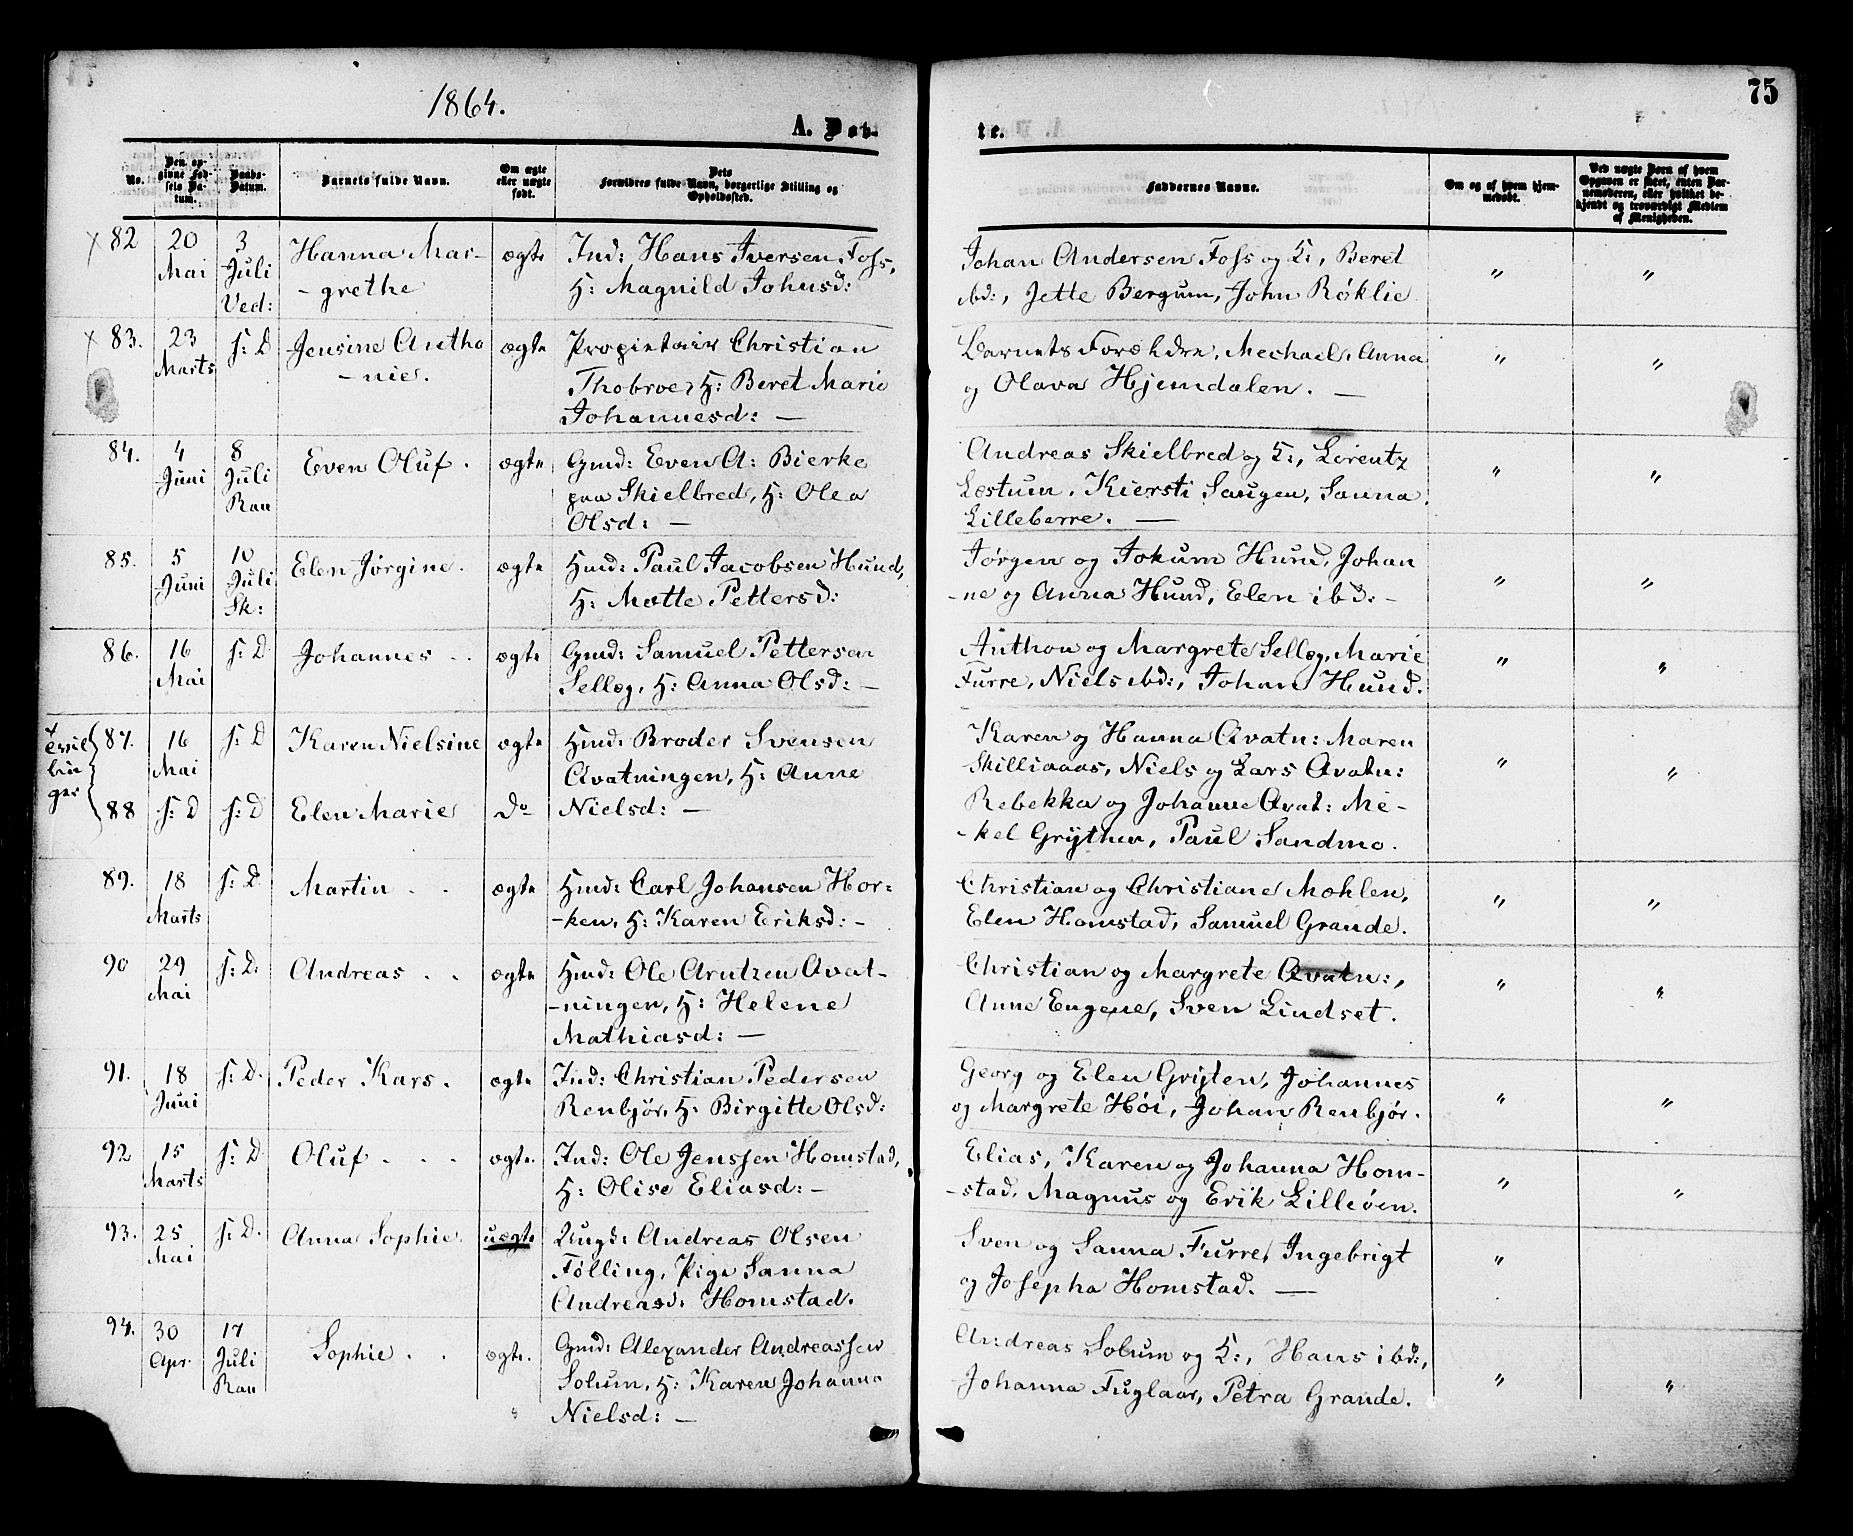 1864.
75
A. Døb-
te.
No.
Den op-
givne Fød-
sels Da-
tum.
Daabs-
Datum.
Barnets fulde Navn.
Om ægte
eller uægte
født.
Dets
Forældres fulde Navn, borgerlige Stilling og
Opholdssted.
Faddernes Navne.
Om og af hvem hjem-
medøbt.
Ved uægte Børn af hvem
Opgaven er skeet, enten Bar-
nemoderen, eller hvilket be-
kjendt og troværdigt Medlem
af Menigheden.
x 82 20 Mai 3 Juli Ved: Hanna Mar-
-grethe ægte Ind: Hans Iversen Foss,
H: Magnild Johnsd:
Johan Andersen Foss og K:, Beret
ibd:, Jette Bergum, John Røklie " "
x 83. 23 Marts s: D Jensine Antho
-nie. ægte Propietair Christian
Thobroe, H: Beret Marie
Johannesd: —
Barnets Forældre, Mechael, Anna
og Olava Hjemdalen. — " "
84. 4 Juni 8 Juli Ran Even Oluf. ægte Gmd: Even A: Bierke
paa Skielbred, H: Olea
Olsd: —
Andreas Skielbred og K:, Lorentz
Læstum, Kiersti Saugen, Sanna
Lilleberre. — " "
85. 5 Juni 10 Juli Sk: Elen Jørgine. ægte Hmd: Paul Jacobsen Hund,
H: Mette Pettersd:
Jørgen og Jokum Hund, Johan
-ne og Anna Hund, Elen ibd: - " "
86. 16 Mai s: D. Johannes . . ægte Gmd: Samuel Pettersen
Selleg, H: Anna Olsd: —
Anthon og Margrete Selleg, Marie
Furre, Niels ibd:, Johan Hund. " "
Tvil
lin
ger
87. 16 Mai s: D Karen Nielsine ægte Hmd: Broder Svensen
Avatningen, H: Anne
88 s: D s: D Elen Marie Do Nielsd: —
Karen og Hanna Avatn: Maren
Skilliaaas, Niels og Lars Avatn:
Rebekka og Johanne Avat: Mi-
-kel Grythen, Paul Sandmo. " "
89. 18 Marts s: D. Martin . . ægte Hmd: Carl Johansen Hor-
-ken, H: Karen Eriksd: -
Christian og Christiane Mæhlen,
Elen Homstad, Samuel Grande. " "
90 29 Mai s: D. Andreas . . ægte Hmd: Ole Arntzen Avat-
-ningen, H: Helene
Mathiasd: —
Christian og Margrete Avatn:,
Anne Eugene, Sven Lindset. " "
91. 18 Juni s: D. Peder Kars. ægte Ind: Christian Pedersen
Renbjør, H: Birgitte Olsd:
Georg og Elen Gryten, Johannes
og Margrete Høi, Johan Renbjør. " "
92 15 Marts s: D. Oluf - - - ægte. Ind: Ole Jenssen Homstad,
H: Olise Eliasd: -
Elias, Karen og Johanna Hom-
-stad, Magnus og Erik Lilleøen. " "
93. 25 Mai s: D. Anna Sophie. uægte Ungk: Andreas Olsen
Følling, Pige Sanna
Andreasd: Homstad.
Sven og Sanna Furre, Ingebrigt
og Josepha Homstad. — "
94. 30 Apr. 17 Juli Ran Sophie . . ægte. Gmd: Alexander Andreassen
Solum, H: Karen Johanna
Nielsd: —
Andreas Solum og K:, Hans ibd:,
Johanna Fuglaar, Petra Grande. " "